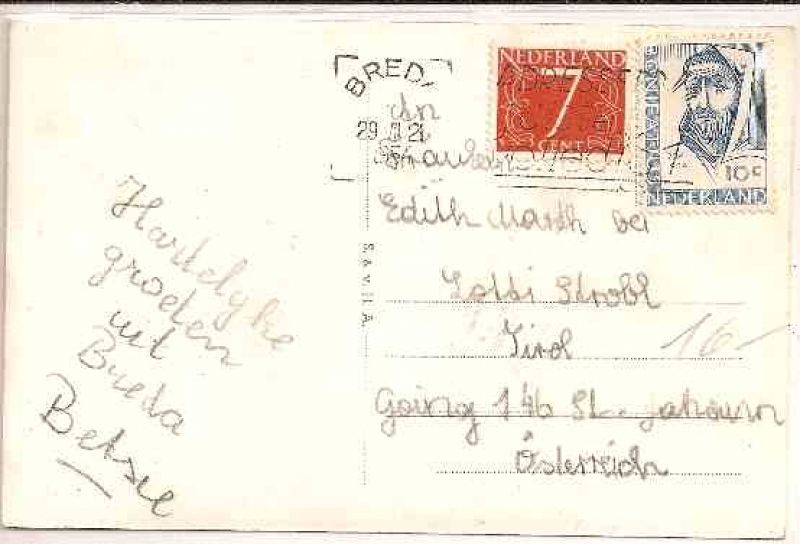 Hartelyke
groeten
uit
Breda
Betsie
BREDA
29
21
1954
NEDERLAND
7
CENT
BONIFATIUS
10c
NEDERLAND
An
Fraulein
Edith Marsh bei
Lotti Strobl
Tirol
Going 146 St. Johann
Österreich
16-
S & v H A